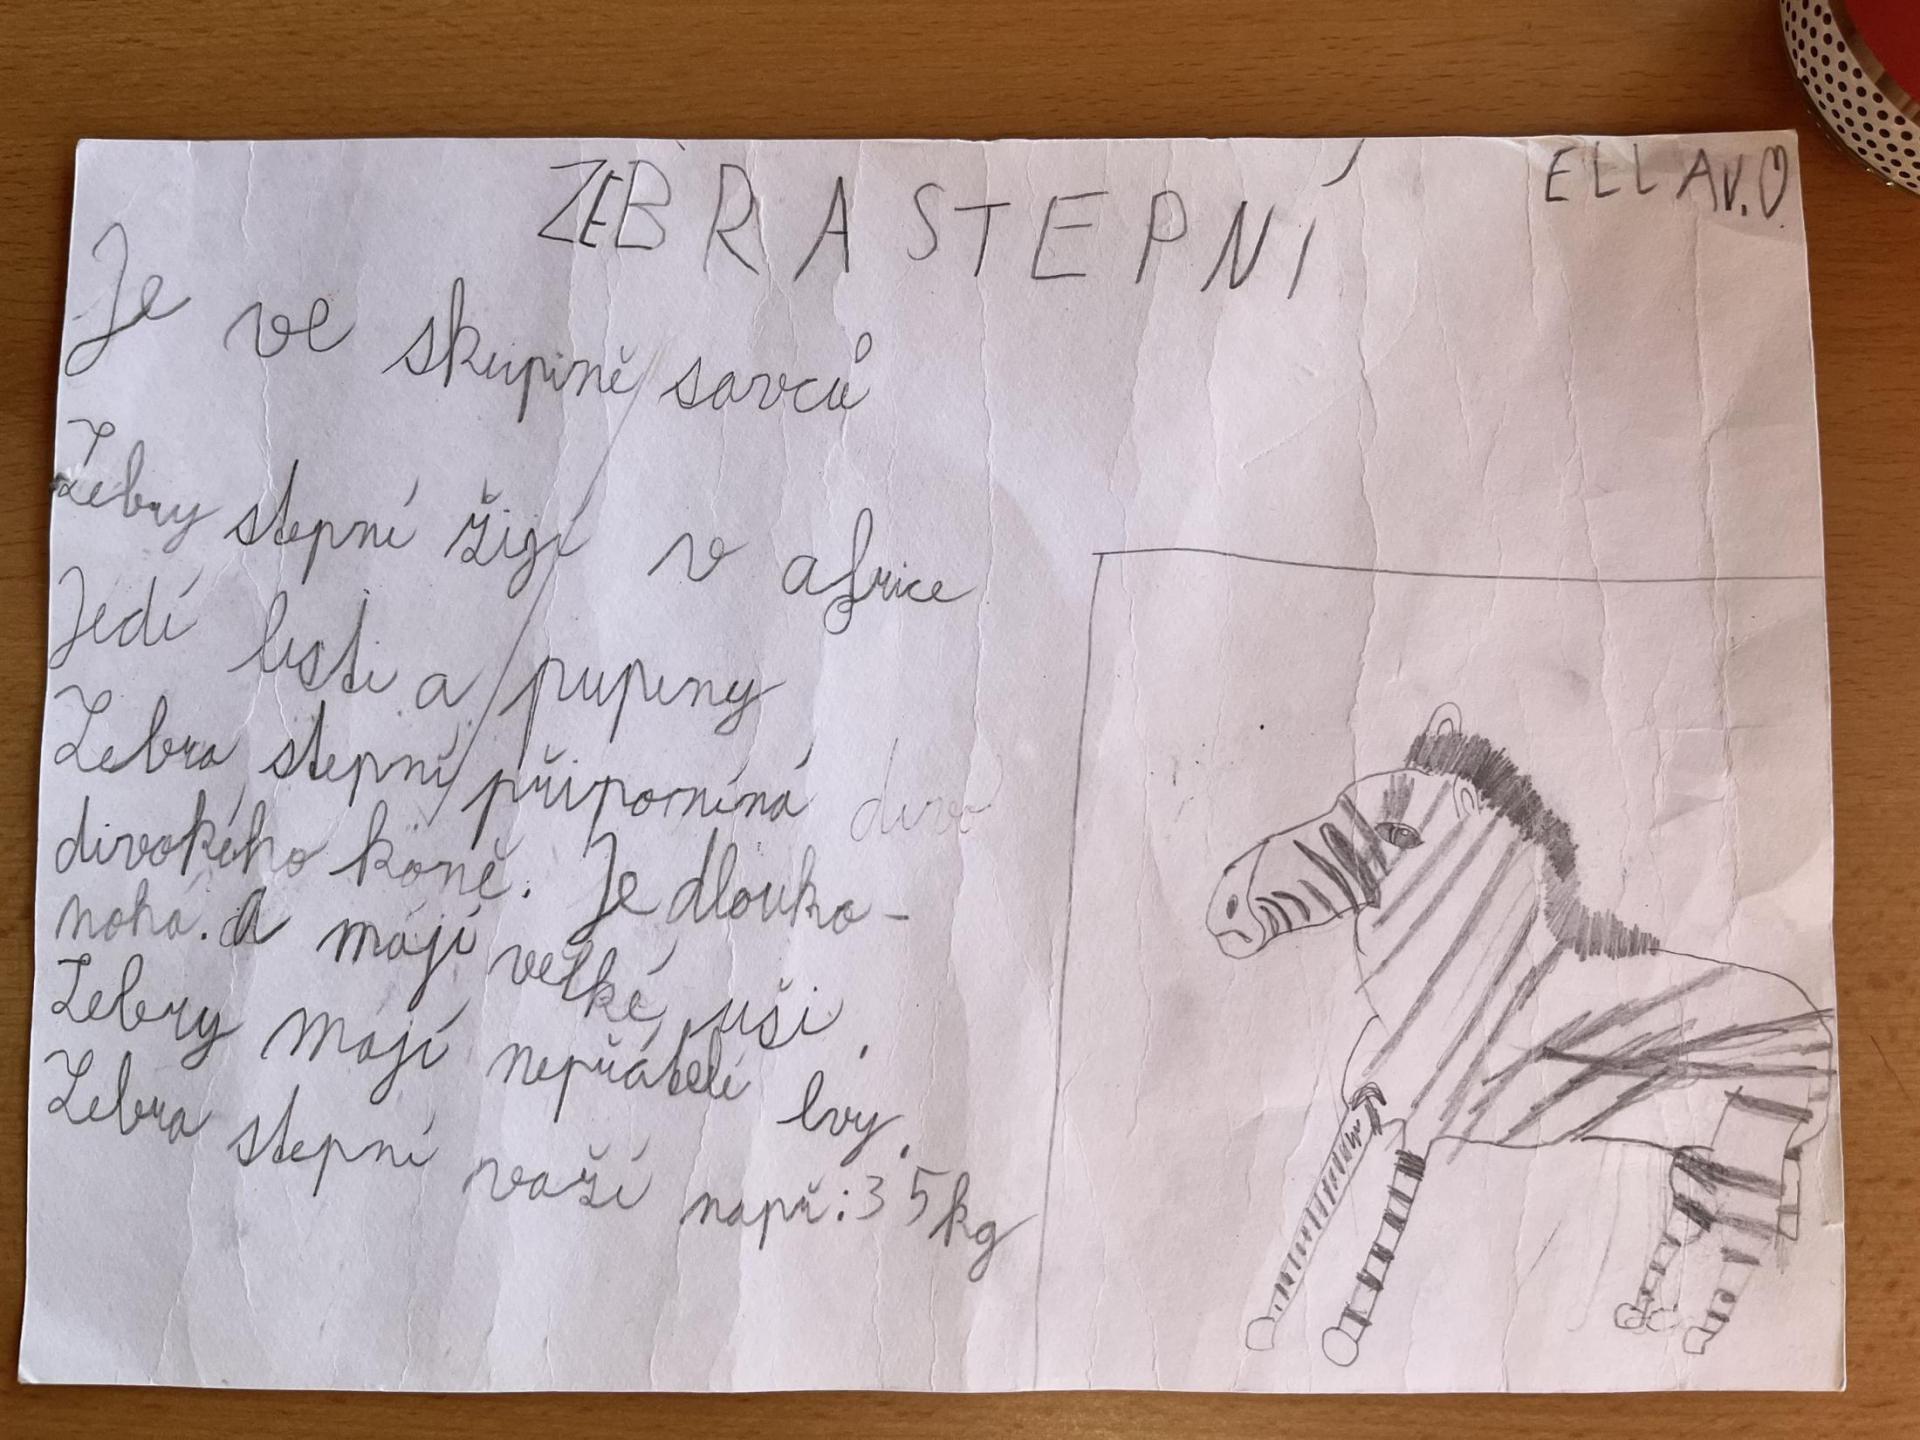 ZEBRA STEPNÍ
ELLA V.
Je ve skupině savců
Zebry stepní žijí v africe
Jedí listi a pupeny
Zebra stepní připomíná divo
divokého koně. Je dlouko-
nohá. A mají velké uši.
Zebry mají nepřátelé lvy.
Zebra stepní važí např:35kg